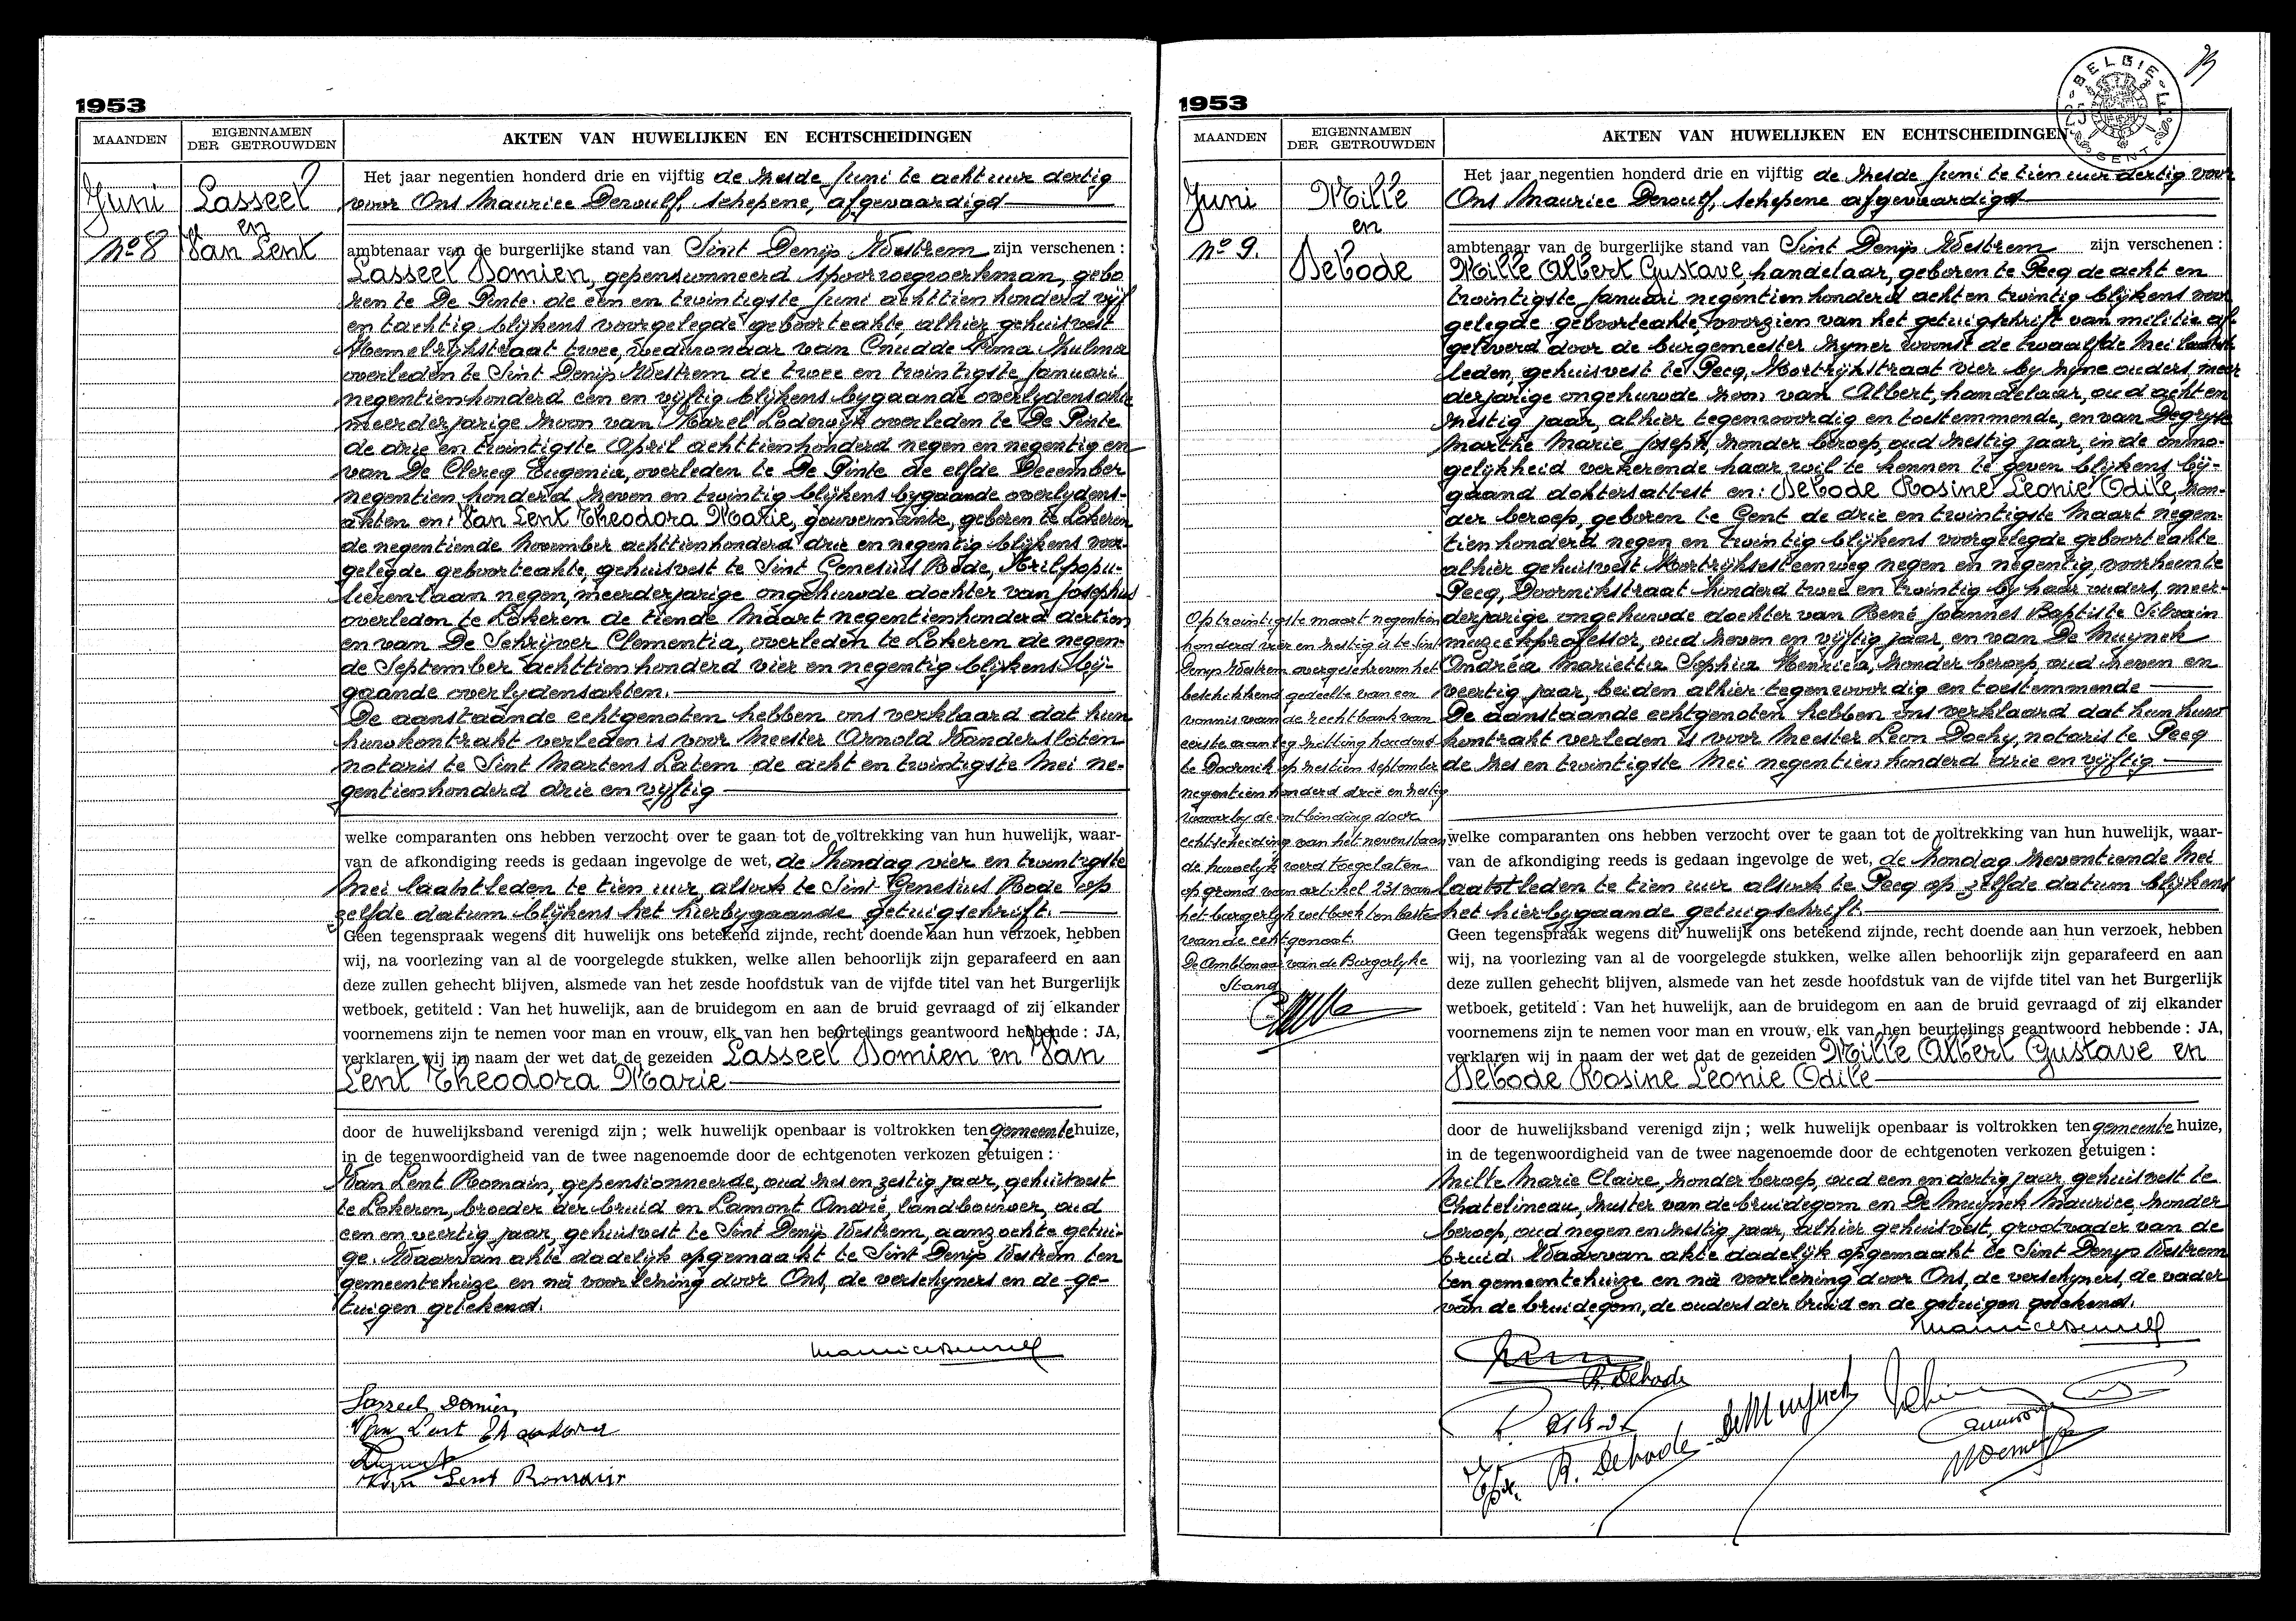 1953
MAANDEN
EIGENNAMEN
DER GETROUWDEN
AKTEN VAN HUWELIJKEN EN ECHTSCHEIDINGEN
Juni
No 8
Lasseel
en
Van Lent
Het jaar negentien honderd drie en vijftig de zesde Juni te acht uur dertig
voor Ons Maurice Dewulf, schepene, afgevaardigd
ambtenaar van de burgerlijke stand van Sint Denijs Westrem zijn verschenen :
Lasseel Domien, gepensionneerd spoorwegwerkman, gebo
ren te De Pinte de een en twintigste Juni achttien honderd vijf
en tachtig blijkens voorgelegde geboorteakte, alhier gehuisvest
Hemelrijkstraat twee, weduwnaar van Cnudde Irma Zulma
overleden te Sint Denijs Westrem de twee en twintigste Januari
negentienhonderd een en vijftig blijkens bygaande overlydensakte
meerderjarige zoon van Karel Lodewijk overleden te De Pinte
de drie en twintigste April achttienhonderd negen en negentig en
van De Clercq Eugenia, overleden te De Pinte de elfde December
negentien honderd zeven en twintig blijkens bygaande overlydens-
akten en: Van Lent Theodora Marie, gouvernante, geboren te Lokeren
de negentiende November achttienhonderd drie en negentig blijkens voor-
gelegde geboorteakte, gehuisvest te Sint Genesius Rode, Trilpopu-
lierenlaan negen, meerderjarige ongehuwde dochter van Josephus
overleden te Lokeren de tiende Maart negentienhonderd dertien
en van De Schrijver Clementia, overleden te Lokeren de negen-
de September achttienhonderd vier en negentig blijkens bij-
gaande overlydensakten.
De aanstaande echtgenoten hebben ons verklaard dat hun
huwkontrakt verleden is voor Meester Arnold Vandersloten
notaris te Sint Martens Latem de acht en twintigste Mei ne-
gentienhonderd drie en vyftig
welke comparanten ons hebben verzocht over te gaan tot de voltrekking van hun huwelijk, waar-
van de afkondiging reeds is gedaan ingevolge de wet, de Zondag vier en twintigste
Mei laatstleden te tien uur, alsook te Sint Genesius Rode op
zelfde datum blijkens het hierbygaande getuigschrift.
Geen tegenspraak wegens dit huwelijk ons betekend zijnde, recht doende aan hun verzoek, hebben
wij, na voorlezing van al de voorgelegde stukken, welke allen behoorlijk zijn geparafeerd en aan
deze zullen gehecht blijven, alsmede van het zesde hoofdstuk van de vijfde titel van het Burgerlijk
wetboek, getiteld : Van het huwelijk, aan de bruidegom en aan de bruid gevraagd of zij elkander
voornemens zijn te nemen voor man en vrouw, elk van hen beurtelings geantwoord hebbende : JA,
verklaren wij in naam der wet dat de gezeiden Lasseel Domien en Van
Lent Theodora Marie
door de huwelijksband verenigd zijn ; welk huwelijk openbaar is voltrokken ten gemeentehuize,
in de tegenwoordigheid van de twee nagenoemde door de echtgenoten verkozen getuigen :
Van Lent Romain, gepensionneerde, oud zes en zestig jaar, gehuisvest
te Lokeren, broeder der bruid en Lamont André, landbouwer, oud
een en veertig jaar, gehuisvest te Sint Denijs Westrem, aanzochte getui-
ge. Waarvan akte dadelijk opgemaakt te Sint Denijs Westrem ten
gemeentehuize en na voorlezing door Ons, de verschijners en de ge-
tuigen getekend.
Lasseel Domien
Van Lent Theodora
Van Lent Romain
1953
BELGIE
GENT
MAANDEN
EIGENNAMEN
DER GETROUWDEN
AKTEN VAN HUWELIJKEN EN ECHTSCHEIDINGEN
Juni
No 9.
Mille
en
Debode
Het jaar negentien honderd drie en vijftig de zesde Juni te tien uur dertig voor
Ons Maurice Dewulf, schepene afgevaardigd
ambtenaar van de burgerlijke stand van Sint Denijs Westrem zijn verschenen :
Mille Albert Gustave, handelaar, geboren te Pecq de acht en
twintigste Januari negentienhonderd acht en twintig blijkens voor
gelegde geboorteakte, voorzien van het getuigschrift van militie af-
geleverd door de burgemeester zyner woonst de twaalfde Mei laatst
leden, gehuisvest te Pecq, Kortrijkstraat vier by zyne ouders, meer
derjarige ongehuwde zoon van Albert, handelaar, oud acht en
zestig jaar, alhier tegenwoordig en toestemmende, en van Degryse
Marthe Marie Joseph, zonder beroep, oud zestig jaar, in de onmo-
gelykheid verkerende haar wil te kennen te geven blijkens bij-
gaand doktersattest en: Debode Rosine Leonie Odile, zon-
der beroep, geboren te Gent de drie en twintigste Maart negen-
tienhonderd negen en twintig blijkens voorgelegde geboorteakte
alhier gehuisvest Kortrijksesteenweg negen en negentig, voorheen te
Pecq, Doornikstraat honderd twee en twintig by haar ouders, meer-
derjarige ongehuwde dochter van René Joannes Baptiste Silvain
muziekprofessor, oud zeven en vijftig jaar, en van De Muynck
Andréa Mariettia Sophia Henrica, zonder beroep, oud zeven en
veertig jaar, beiden alhier tegenwoordig en toestemmende
De aanstaande echtgenoten hebben ons verklaard dat hun huw
kontrakt verleden is voor Meester Leon Dochy, notaris te Pecq
de zes en twintigste Mei negentien honderd drie en vijftig
Op twintigste maart negentien
honderd vier en zestig is te Sint
Denys Westrem overgeschreven het
beschikkend gedeelte van een
vonnis van de rechtbank van
eerste aanleg zitting houdend
te Doornik op zestien september
negentienhonderd drie en zestig
waarby de ontbinding door
echtscheiding van het nevenstaan
de huwelyk werd toegelaten
op grond van artikel 231 van
het burgerlyk wetboek ten laste
van de echtgenoot.
De Ambtenaar van de Burgerlyke
Stand
welke comparanten ons hebben verzocht over te gaan tot de voltrekking van hun huwelijk, waar-
van de afkondiging reeds is gedaan ingevolge de wet, de Zondag zeventiende Mei
laatstleden te tien uur alsook te Pecq op zelfde datum blijkens
het hierbygaande getuigschrift.
Geen tegenspraak wegens dit huwelijk ons betekend zijnde, recht doende aan hun verzoek, hebben
wij, na voorlezing van al de voorgelegde stukken, welke allen behoorlijk zijn geparafeerd en aan
deze zullen gehecht blijven, alsmede van het zesde hoofdstuk van de vijfde titel van het Burgerlijk
wetboek, getiteld : Van het huwelijk, aan de bruidegom en aan de bruid gevraagd of zij elkander
voornemens zijn te nemen voor man en vrouw, elk van hen beurtelings geantwoord hebbende : JA,
verklaren wij in naam der wet dat de gezeiden Mille Albert Gustave en
Debode Rosine Leonie Odile
door de huwelijksband verenigd zijn ; welk huwelijk openbaar is voltrokken ten gemeentehuize,
in de tegenwoordigheid van de twee nagenoemde door de echtgenoten verkozen getuigen :
Mille Marie Claire, zonder beroep, oud een en dertig jaar, gehuisvest te
Chatelineau, zuster van de bruidegom en De Muynck Maurice, zonder
beroep, oud negen en zestig jaar, alhier gehuisvest, grootvader van de
bruid. Waarvan akte dadelijk opgemaakt te Sint Denys Westrem
ten gemeentehuize en na voorlezing door Ons, de verschyners, de vader
van de bruidegom, de ouders der bruid en de getuigen getekend.
R. Debode
R. Debode DeMuynck